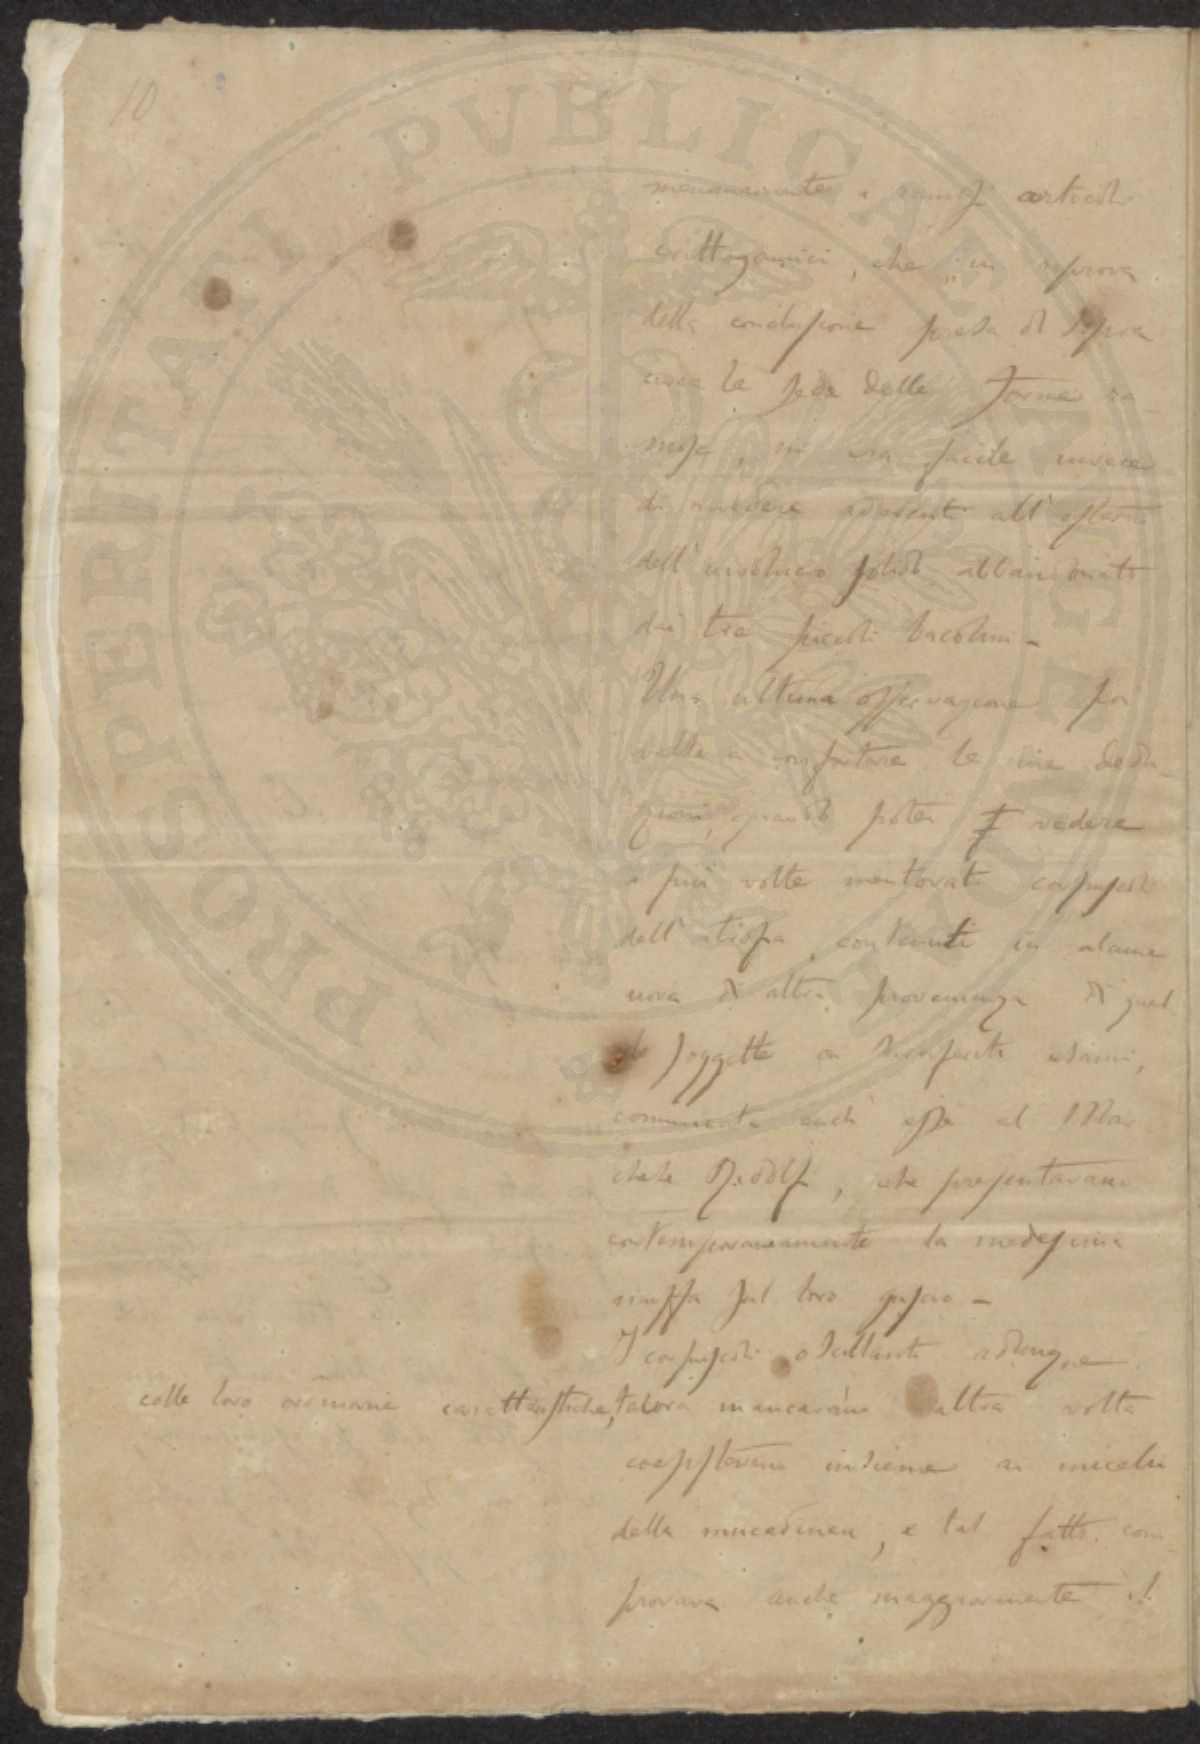 10
PROSPERITATI PVBLICAE AVGENDAE
articoli
crittogamici, che in riprova
della conclusione presa di sopra
circa la sede delle forme ra-
mose, mi era facile invece
di rivedere aderenti all'esterno
dell'involucro solido abbandonato
dai tre piccoli bacolini -
Una ultima osservazione poi
valse a confortare le mie dedu-
zioni, quando potei vedere
i più volte mentovati corpuscoli
dell'atrofia, contenuti in alcune
uova di altra provenienza di quel-
le soggette ai surriferiti esami,
comunicate anch'esse al Mar
chese Ridolfi, che presentavano
contemporaneamente la medesima
muffa sul loro guscio -
I corpuscoli oscillanti adunque
colle loro ordinarie caratteristiche, talora mancavano altra volta
coesistevano insieme ai micelii
della mucedinea, e tal fatto com
provava anche maggiormente il